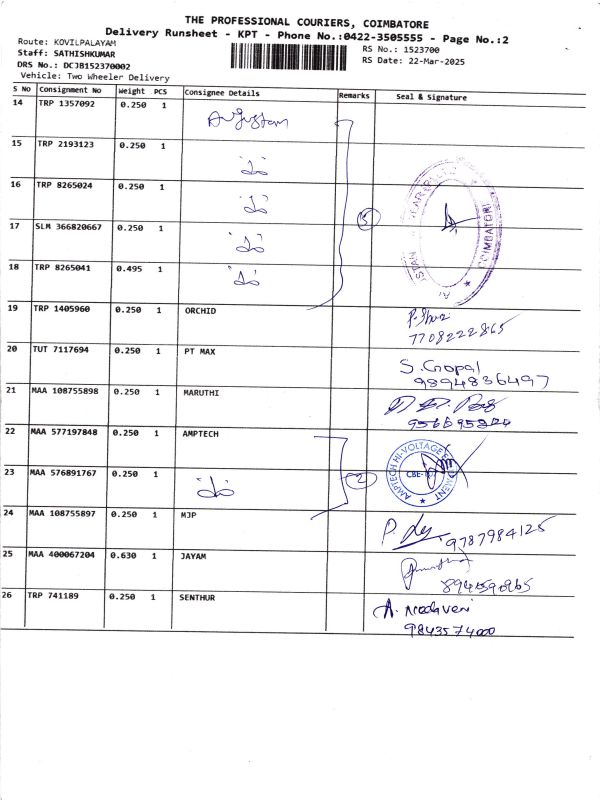 THE PROFESSIONAL COURIERS, COIMBATORE
Delivery Runsheet - KPT - Phone No.:0422-3505555 - Page No.:2
Route: KOVILPALAYAM
Staff: SATHISHKUMAR
DRS No.: DCJB152370002
Vehicle: Two Wheeler Delivery
RS No.: 1523700
RS Date: 22-Mar-2025
S No Consignment No Weight PCS Consignee Details Remarks Seal & Signature
14 TRP 1357092 0.250 1
15 TRP 2193123 0.250 1
16 TRP 8265024 0.250 1
17 SLM 366820667 0.250 1
18 TRP 8265041 0.495 1
5
COIMBATORE
19 TRP 1405960 0.250 1 ORCHID
7708222865
20 TUT 7117694 0.250 1 PT MAX S. Gopal
9894836497
21 MAA 108755898 0.250 1 MARUTHI
22 MAA 577197848 0.250 1 AMPTECH
23 MAA 576891767 0.250 1
2
AMPTECH HI-VOLTAGE
CBE-
24 MAA 108755897 0.250 1 MJP
9787984125
25 MAA 400067204 0.630 1 JAYAM
26 TRP 741189 0.250 1 SENTHUR A. Madaveni
9843574000